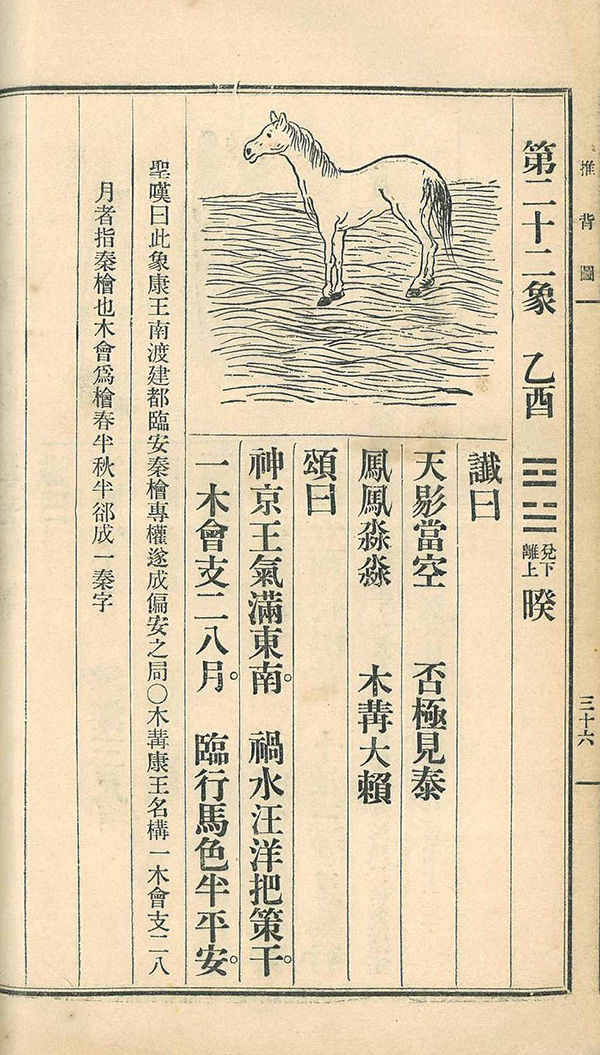 推背圖
三十六
第二十二象 乙酉 ䷥ 兌下離上 暌
讖曰
天影當空 否極見泰
鳳鳳淼淼 木冓大賴
頌曰
神京王氣滿東南。 禍水汪洋把策干。
一木會支二八月。 臨行馬色半平安。
聖嘆曰此象康王南渡建都臨安秦檜專權遂成偏安之局〇木冓康王名構一木會支二八
月者指秦檜也木會爲檜春半秋半郤成一秦字